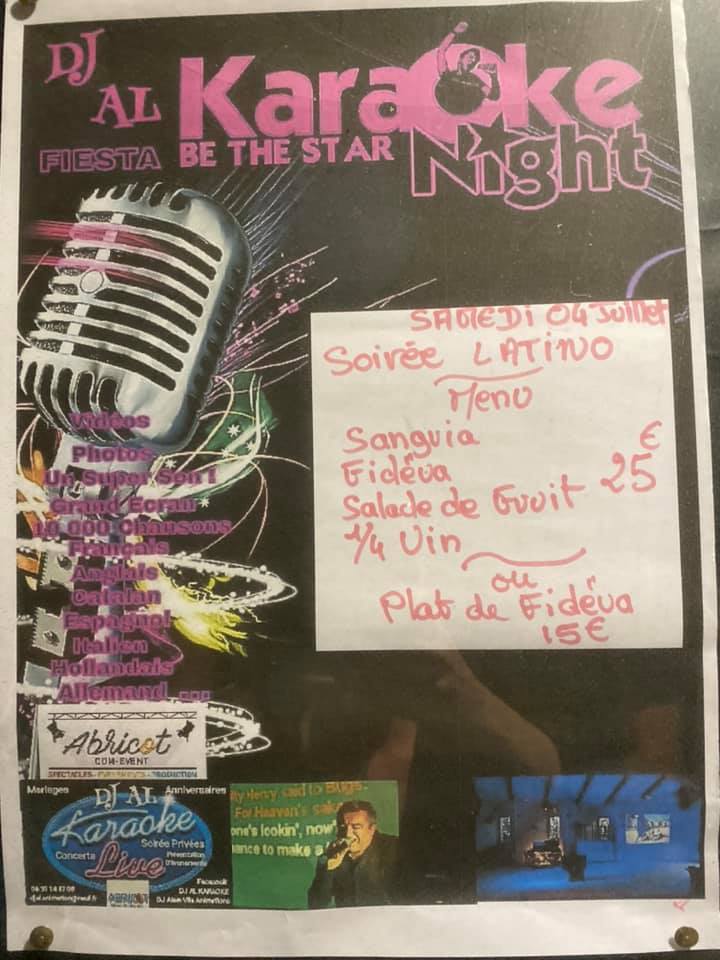 DJ
AL
FIESTA
Karaoke
BE THE STAR
Night
SAMEDI 04 Juillet
Soirée LATINO
Menu
Sanguia
Fidéua
Salade de Fruit
1/4 Vin
25 €
ou
Plat de Fidéua
15€
Vidéos
Photos
Un Super Son !
Grand Ecran
10 000 Chansons
Français
Anglais
Catalan
Espagnol
Italien
Hollandais
Allemand ...
Abricot
COM-EVENT
SPECTACLES - EVENEMENTS - PRODUCTION
Mariages
DJ AL
Anniversaires
Karaoke
Live
Soirée Privées
Concerts
Présentation
D'évenements
Facebook
DJ AL KARAOKE
DJ Alain Vila Animations
ABRICOT
Henry said to Bugs
For Heaven's sake
one's lookin', now
ance to make a